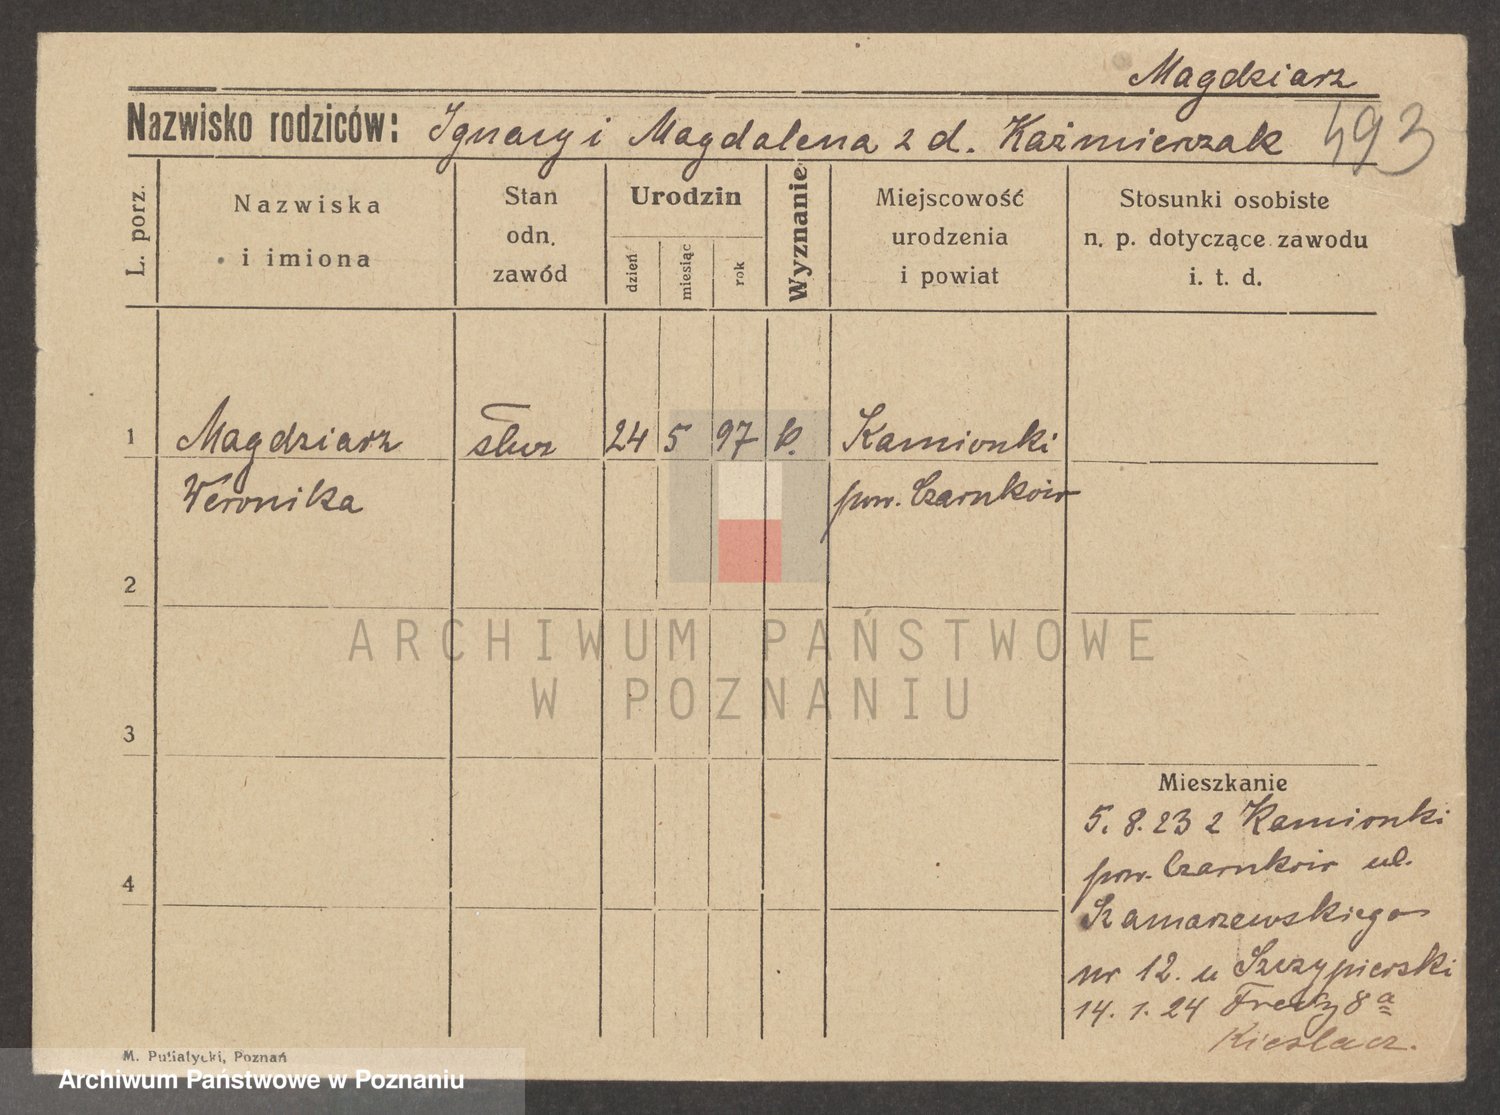 Magdziarz
Nazwisko rodziców: Ignacy i Magdalena z d. Kaźmierzak
493
L. porz.
Nazwiska
i imiona
Stan
odn.
zawód
Urodzin
dzień
miesiąc
rok
Wyznanie
Miejscowość
urodzenia
i powiat
Stosunki osobiste
n. p. dotyczące zawodu
i. t. d.
1 Magdziarz służ 24 5 97 k. Kamionki
Weronika pow. Czarnków
2
ARCHIWUM PAŃSTWOWE
W POZNANIU
3
Mieszkanie
5. 8. 23 z Kamionki
4
pow. Czarnków ul.
Szamarzewskiego
nr 12. u Szczypierski
14. 1. 24 Fredry 8a
M. Putiatycki, Poznań
Archiwum Państwowe w Poznaniu